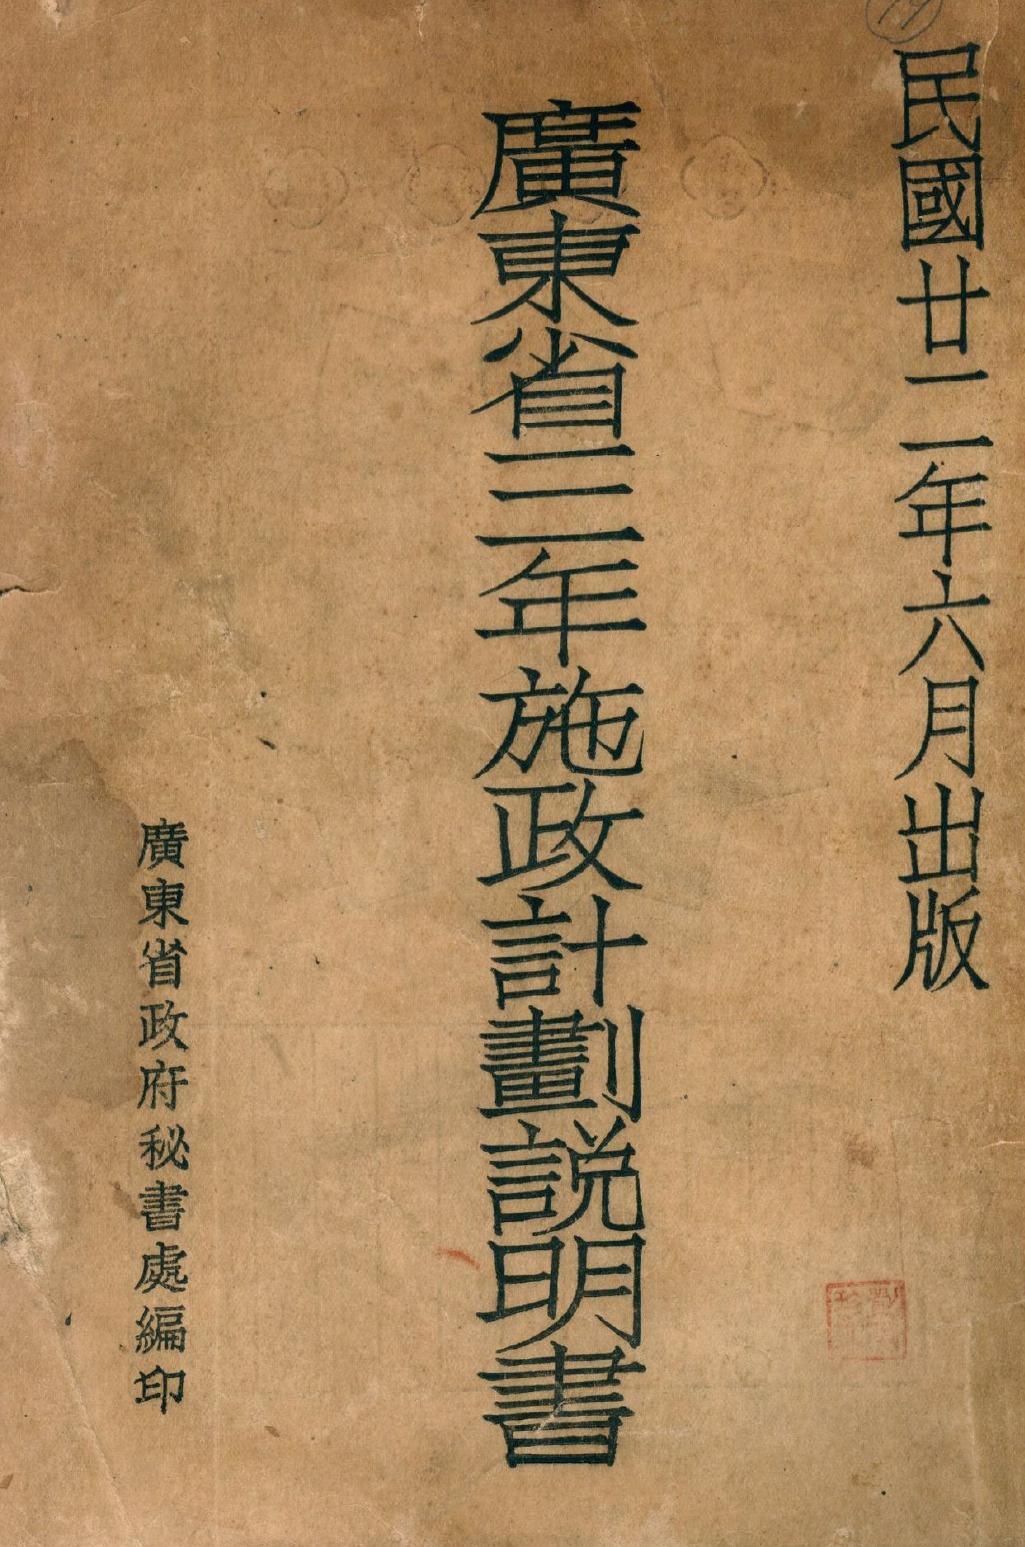 民國廿二年六月出版
廣東省三年施政計劃說明書
廣東省政府秘書處編印